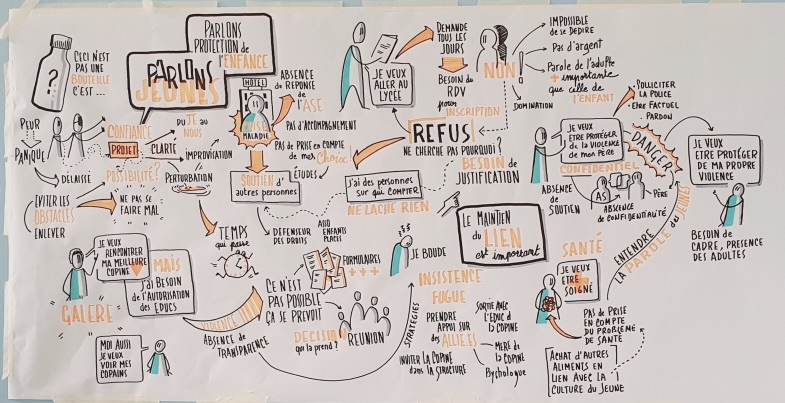 PARLONS
PROTECTION de
l'ENFANCE
PARLONS
JEUNES
?
CECI N'EST
PAS UNE
BOUTEILLE
C'EST...
PEUR
PANIQUE
DÉLAISSÉ
CONFIANCE
PROJET
CLARTÉ
POSSIBILITÉ?
DU JE au
NOUS
IMPROVISATION
PERTURBATION
ÉVITER LES
OBSTACLES
ENLEVER
NE PAS SE
FAIRE MAL
HOTEL
MALADIE
ABSENCE
DE RÉPONSE
DE l'ASE
PAS D'ACCOMPAGNEMENT
PAS DE PRISE EN COMPTE
de mes Choix!
ÉTUDES
SOUTIEN d'
autres personnes
DÉFENSEUR
DES DROITS
ASSO
ENFANTS
PLACÉS
J'ai des personnes
sur qui COMPTER
NE LÂCHE RIEN
JE VEUX
ALLER AU
LYCÉE
DEMANDE
TOUS LES
JOURS
BESOIN du
RDV
pour
INSCRIPTION
NON
IMPOSSIBLE
de se DÉDIRE
Pas d'argent
Parole de l'adulte
+ importante
que celle de
l'ENFANT
DOMINATION
REFUS
NE CHERCHE PAS POURQUOI?
BESOIN de
JUSTIFICATION
JE VEUX
ÊTRE PROTÉGER
DE LA VIOLENCE
DE MON PÈRE
CONFIDENTIEL
DANGER
SOLLICITER
LA POLICE
- Être FACTUEL
PARDON
ABSENCE
DE SOUTIEN
AS
PÈRE
ABSENCE
DE CONFIDENTIALITÉ
JE VEUX
ÊTRE PROTÉGER
DE MA PROPRE
VIOLENCE
BESOIN de
CADRE, PRÉSENCE
DES ADULTES
ENTENDRE
LA PAROLE des JEUNES
LE MAINTIEN
du LIEN
est important
JE VEUX
RENCONTRER
MA MEILLEURE
COPINE
MAIS
J'ai BESOIN
DE l'AUTORISATION
DES ÉDUCS
GALÈRE
MOI AUSSI
JE VEUX
VOIR MES
COPAINS
TEMPS
qui passe
VIOLENCE!!!!
ABSENCE DE
TRANSPARENCE
CE N'EST
PAS POSSIBLE
ÇA SE PRÉVOIT
FORMULAIRES
+++
DÉCISION
qui la prend?
RÉUNION
JE BOUDE
STRATÉGIES
INSISTENCE
FUGUE
PRENDRE
APPUI SUR
des ALLIÉ.E.S
INVITER LA COPINE
dans la STRUCTURE
SORTIE AVEC
L'ÉDUC &
la COPINE
MÈRE de
la COPINE
Psychologue
SANTÉ
JE VEUX
ÊTRE
SOIGNÉ
PAS DE PRISE
EN COMPTE
DU PROBLÈME
DE SANTÉ
ACHAT D'AUTRES
ALIMENTS EN
LIEN AVEC LA
CULTURE DU JEUNE